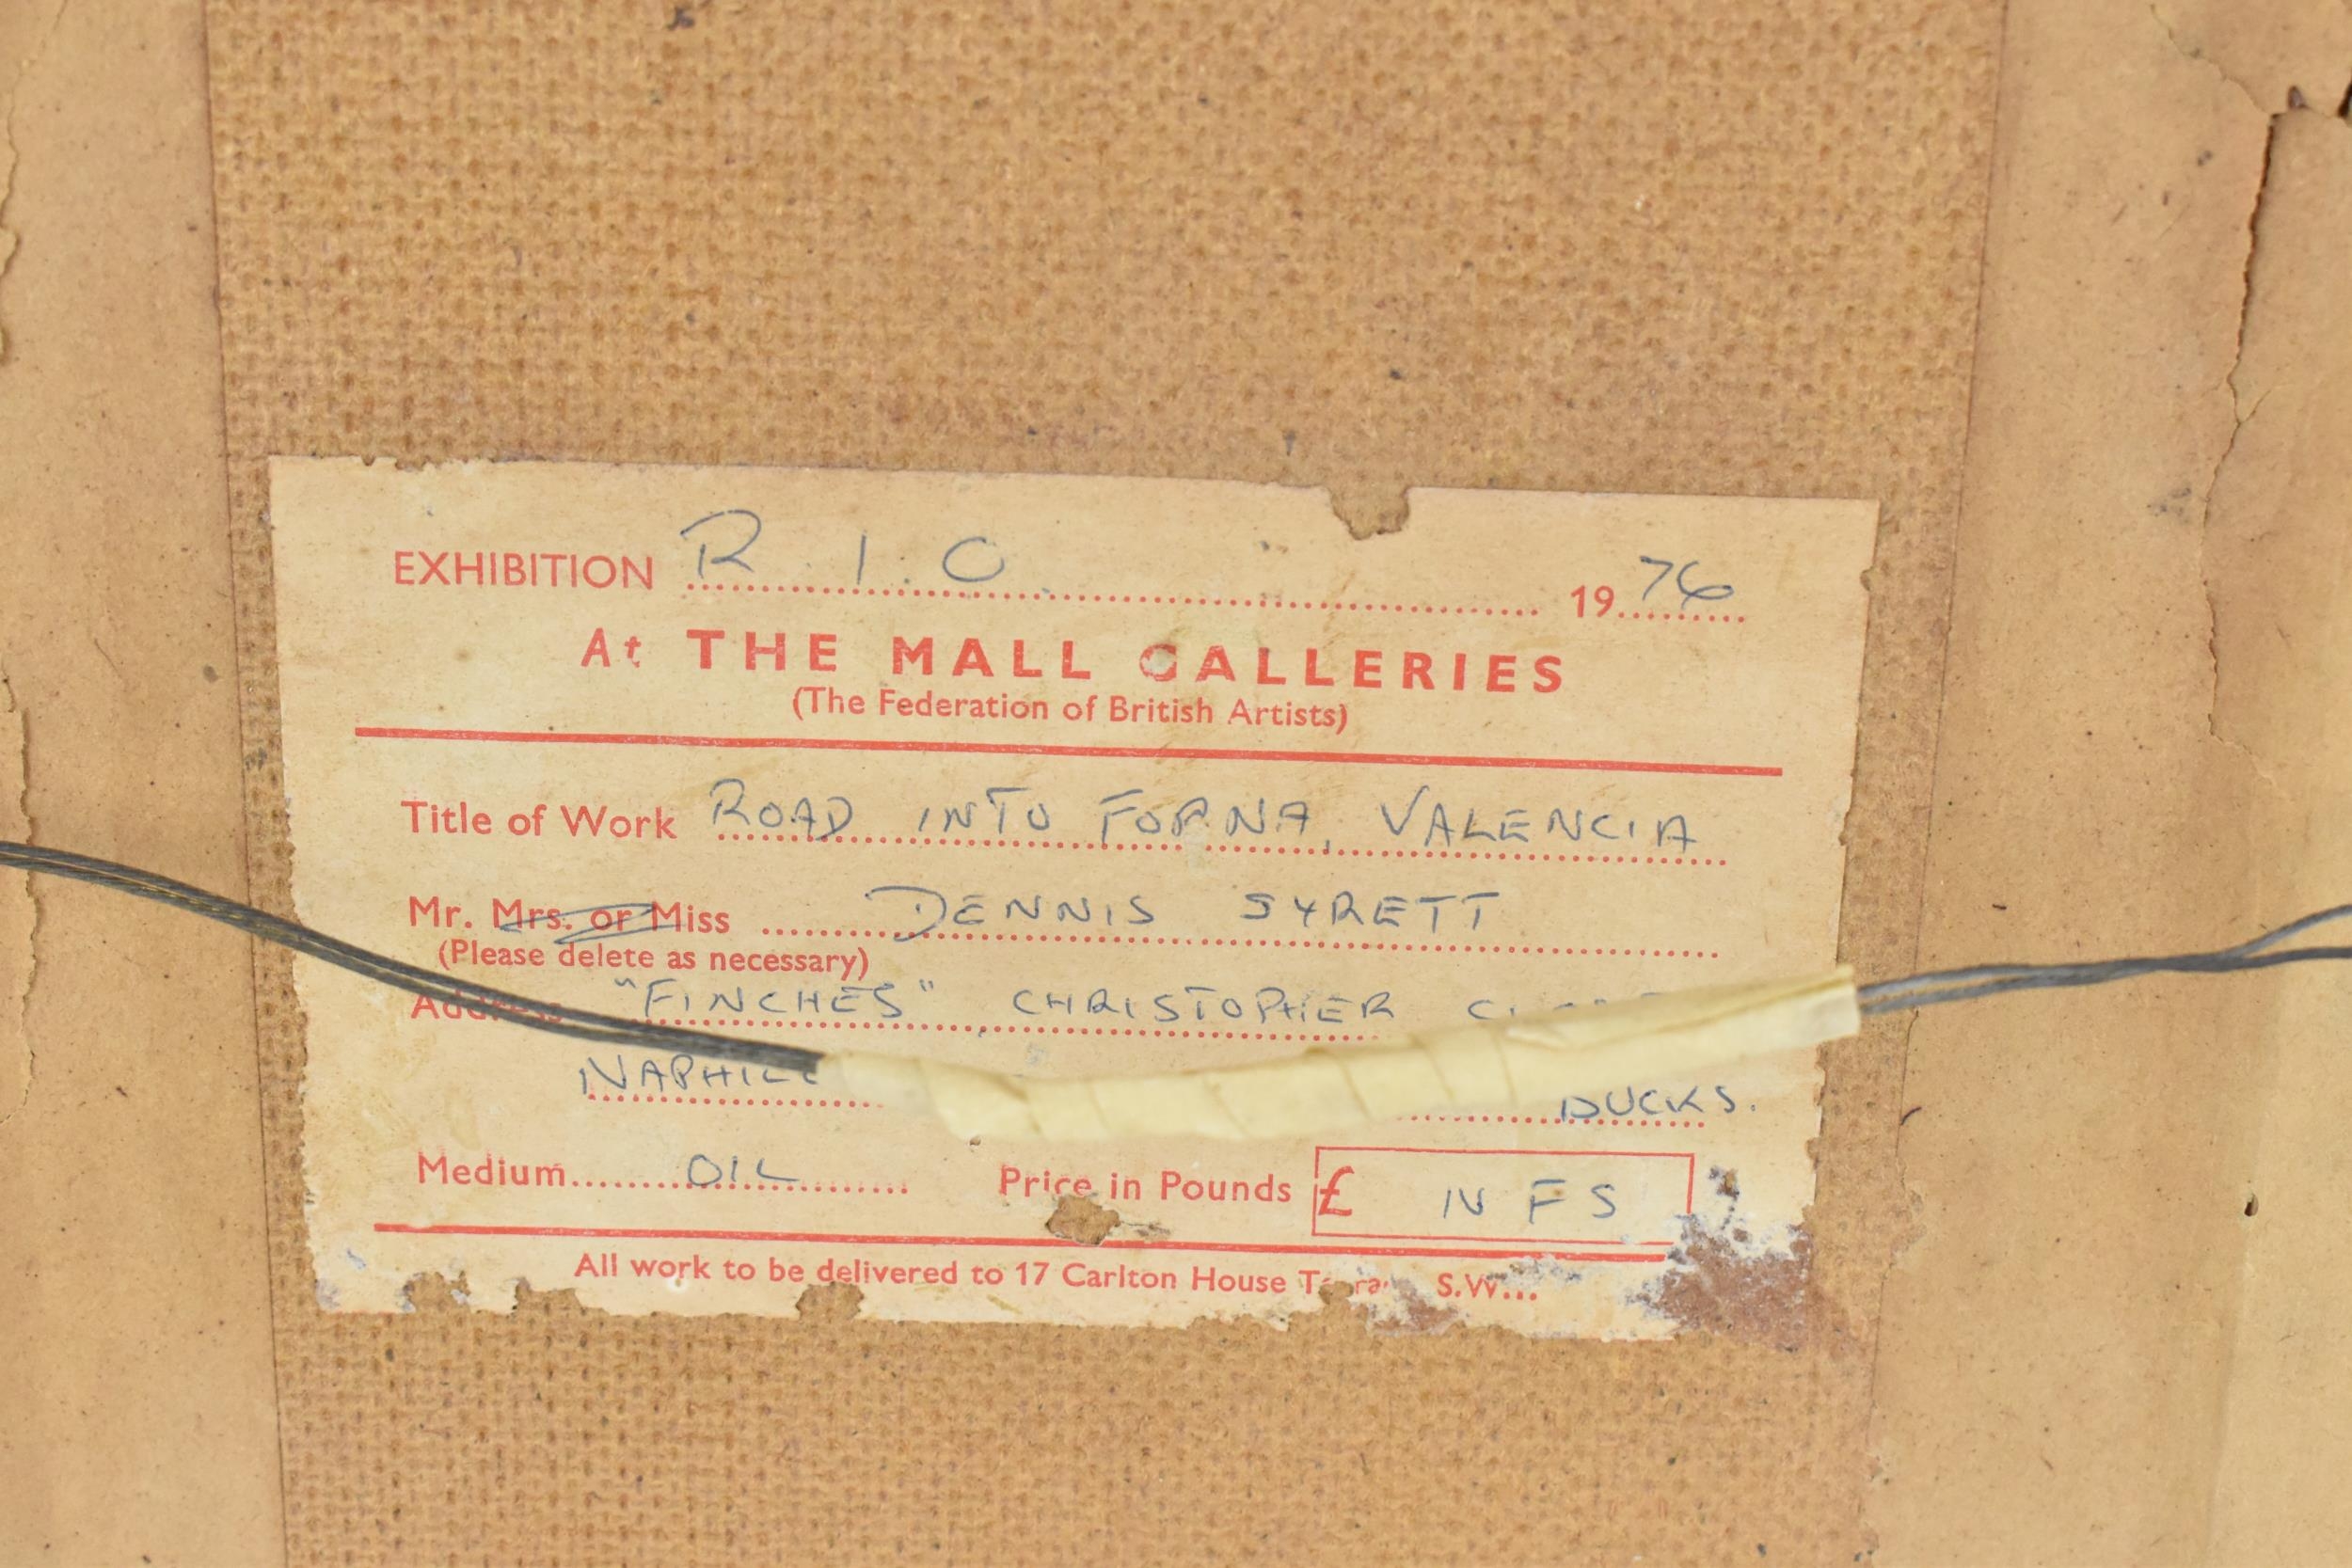 EXHIBITION R.I.O. 1976
At THE MALL GALLERIES
(The Federation of British Artists)
Title of Work ROAD INTO FORNA, VALENCIA
Mr. Mrs. or Miss DENNIS SYRETT
(Please delete as necessary)
Address "FINCHES", CHRISTOPHER
NAPHILL BUCKS.
Medium OIL Price in Pounds £ NFS
All work to be delivered to 17 Carlton House